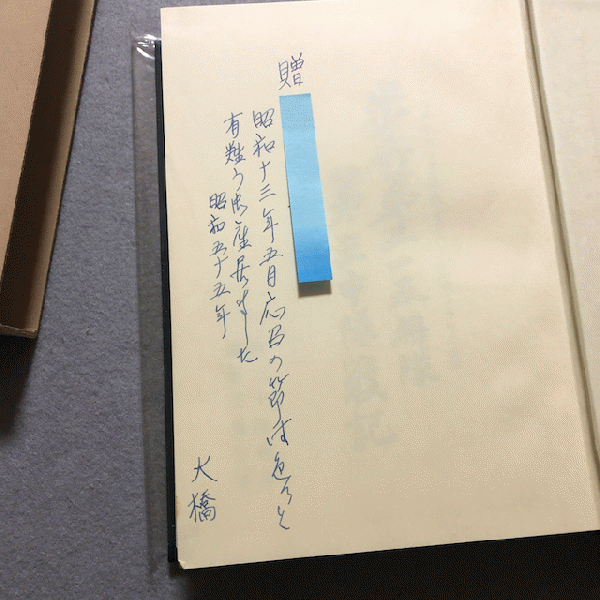 贈
昭和十三年五月応召の節は色々と
有難う御座居ました
昭和五十五年
大橋